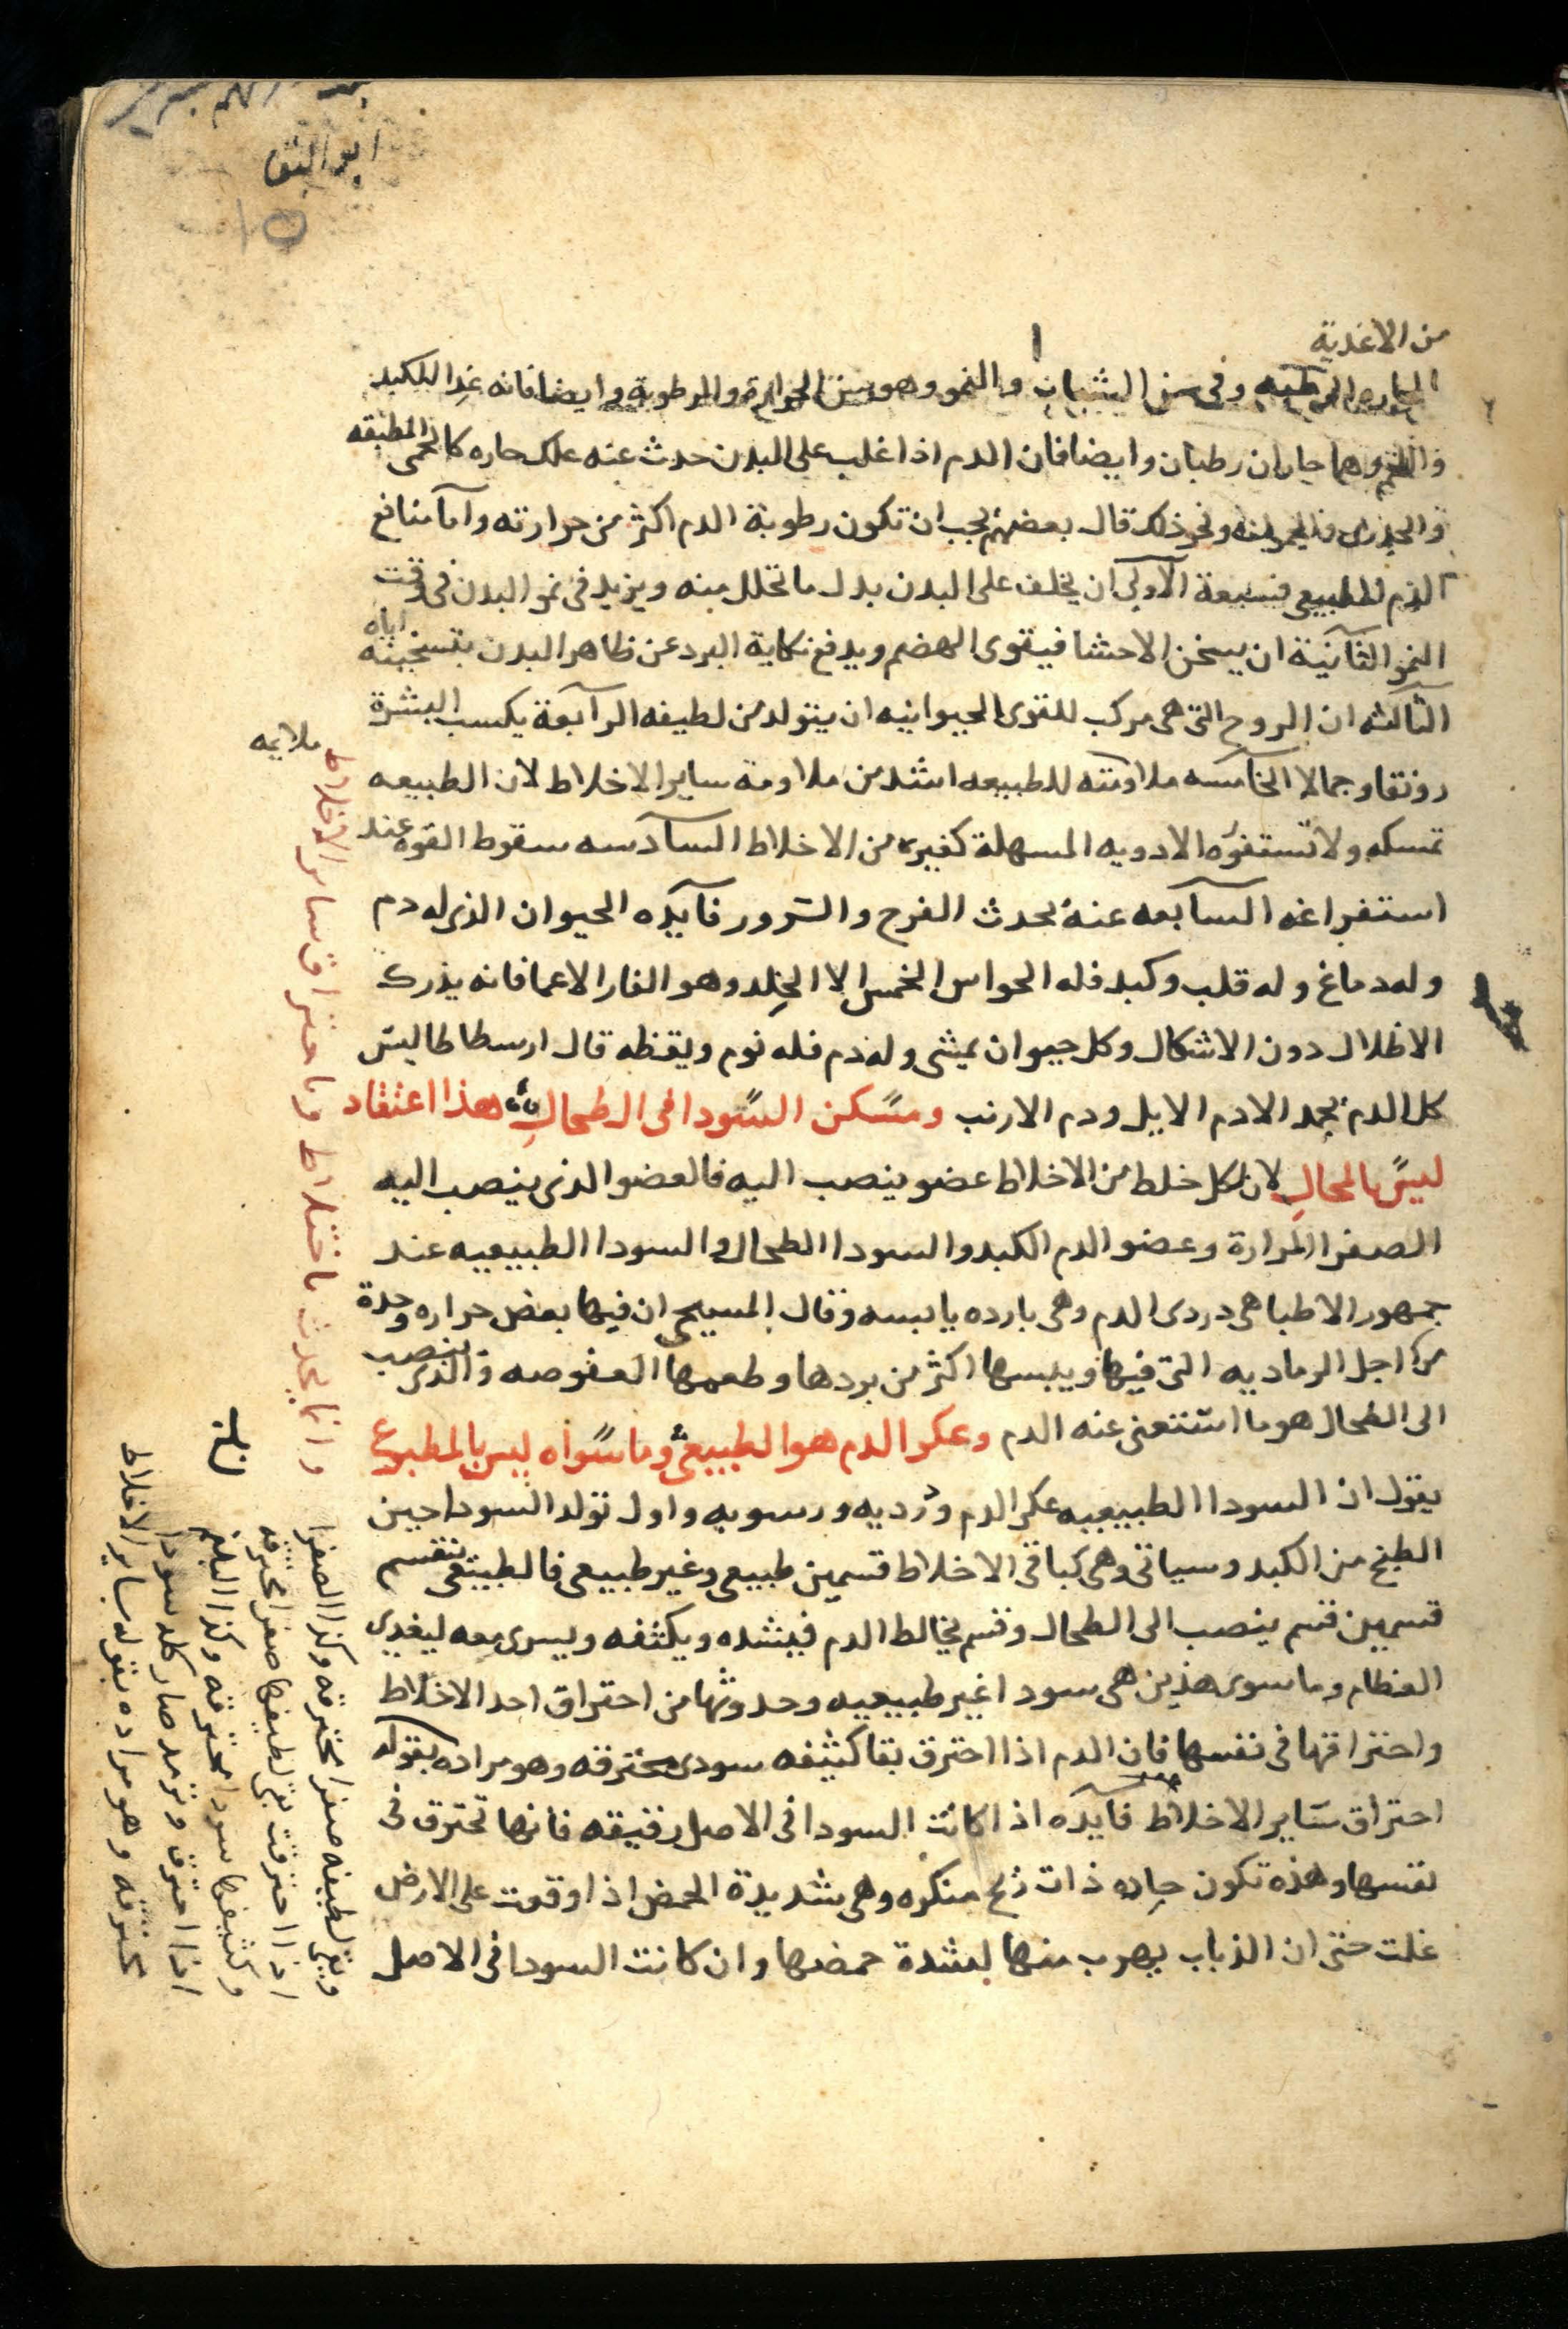 ابو البقا
من الاغدية
الحاره الرطبه وفى سن الشباب والنمو وهو سن الحرارة والرطوبة وايضا فانه غدا للكبد
واللحم وهما حاران رطبان وايضا فان الدم اذا غلب على البدن حدث عنه علل حاره كالحمى المطبقه
والجدرى ونحو ذلك قال بعضهم يجب ان تكون رطوبة الدم اكثر من حرارته وآما منافع
الدم الطبيعى فسبعة الآولى ان يخلف على البدن بدل ما تحلل منه ويزيد فى نمو البدن فى وقت
النمو الثآنية ان يسخن الاحشا فيقوى الهضم ويدفع نكاية البرد عن ظاهر البدن بتسخينه اياه
الثآلثه ان الروح التى هى مركب للقوى الحيوانيه ان يتولد من لطيفه الرآبعة يكسب البشرة
رونقا وجمالا الخآمسه ملاومته للطبيعه اشد من ملاومة ساير الاخلاط لان الطبيعه
تمسكه ولا تستفرغه الادويه المسهلة كغيره من الاخلاط السآدسه سقوط القوه عند
استفراغه السآبعه عنه يحدث الفرح والسرور فآيده الحيوان الذى له دم
وله دماغ وله قلب وكبد فله الحواس الخمس الا الخِلد وهو الفار الاعما فانه يدرك
الاظلال دون الاشكال وكل حيوان يمشى وله دم فله نوم ويقظه قال ارسطاطاليس
كل الدم يجمد الا دم الايل ودم الارنب ومسكن السودا فى الطحالِ هذا اعتقاد
ليس بالمحالِ لان لكل خلط من الاخلاط عضو ينصب اليه فالعضو الذى ينصب اليه
الصفرا المرارة وعضو الدم الكبد والسودا الطحال والسودا الطبيعيه عند
جمهور الاطبا هى دردى الدم وهى بارده يابسه وقال المسيحى ان فيها بعض حراره وحدة
من اجل الرماديه التى فيها ويبسها اكثر من بردها وطعمها العفوصه والذى ينصب
الى الطحال هو ما استغنى عنه الدم وعكر الدم هو الطبيعى وما سواه ليس بالمطبوع
يقول ان السودا الطبيعيه عكر الدم ودرديه ورسوبه واول تولد السودا حين
الطبخ من الكبد وسياتى وهى كباقى الاخلاط قسمين طبيعى وغير طبيعى فالطبيعى ينقسم
قسمين قسم ينصب الى الطحال وقسم يخالط الدم فيشده ويكثفه ويسرى معه ليغدى
العظام وما سوى هذين هى سودا غير طبيعيه وحدوثها من احتراق احد الاخلاط
واحتراقها فى نفسها فان الدم اذا احترق بقا كثيفه سودى محترقه وهو مراده بقوله
احتراق ساير الاخلاط فآيده اذا كانت السودا فى الاصل رقيقه فانها تحترق فى
نفسها وهذه تكون حاده ذات ريح منكره وهى شديدة الحمض اذا وقعت على الارض
غلت حتى ان الذباب يهرب منها لشدة حمضها وان كانت السودا فى الاصل
ملايمه
وانما يحدث باختلاط وباحتراق ساير الاخلاط
ويبقى لطيفه صفرا محترقه وكذا الصفرا
اذا احترقت يبقى لطيفها صفرا محترقه
وكثيفها سودا محترقه وكذا البلغم
اذا احترق وترمد صار كله سودا
محترقه وهو مراده بقوله ساير الاخلاط